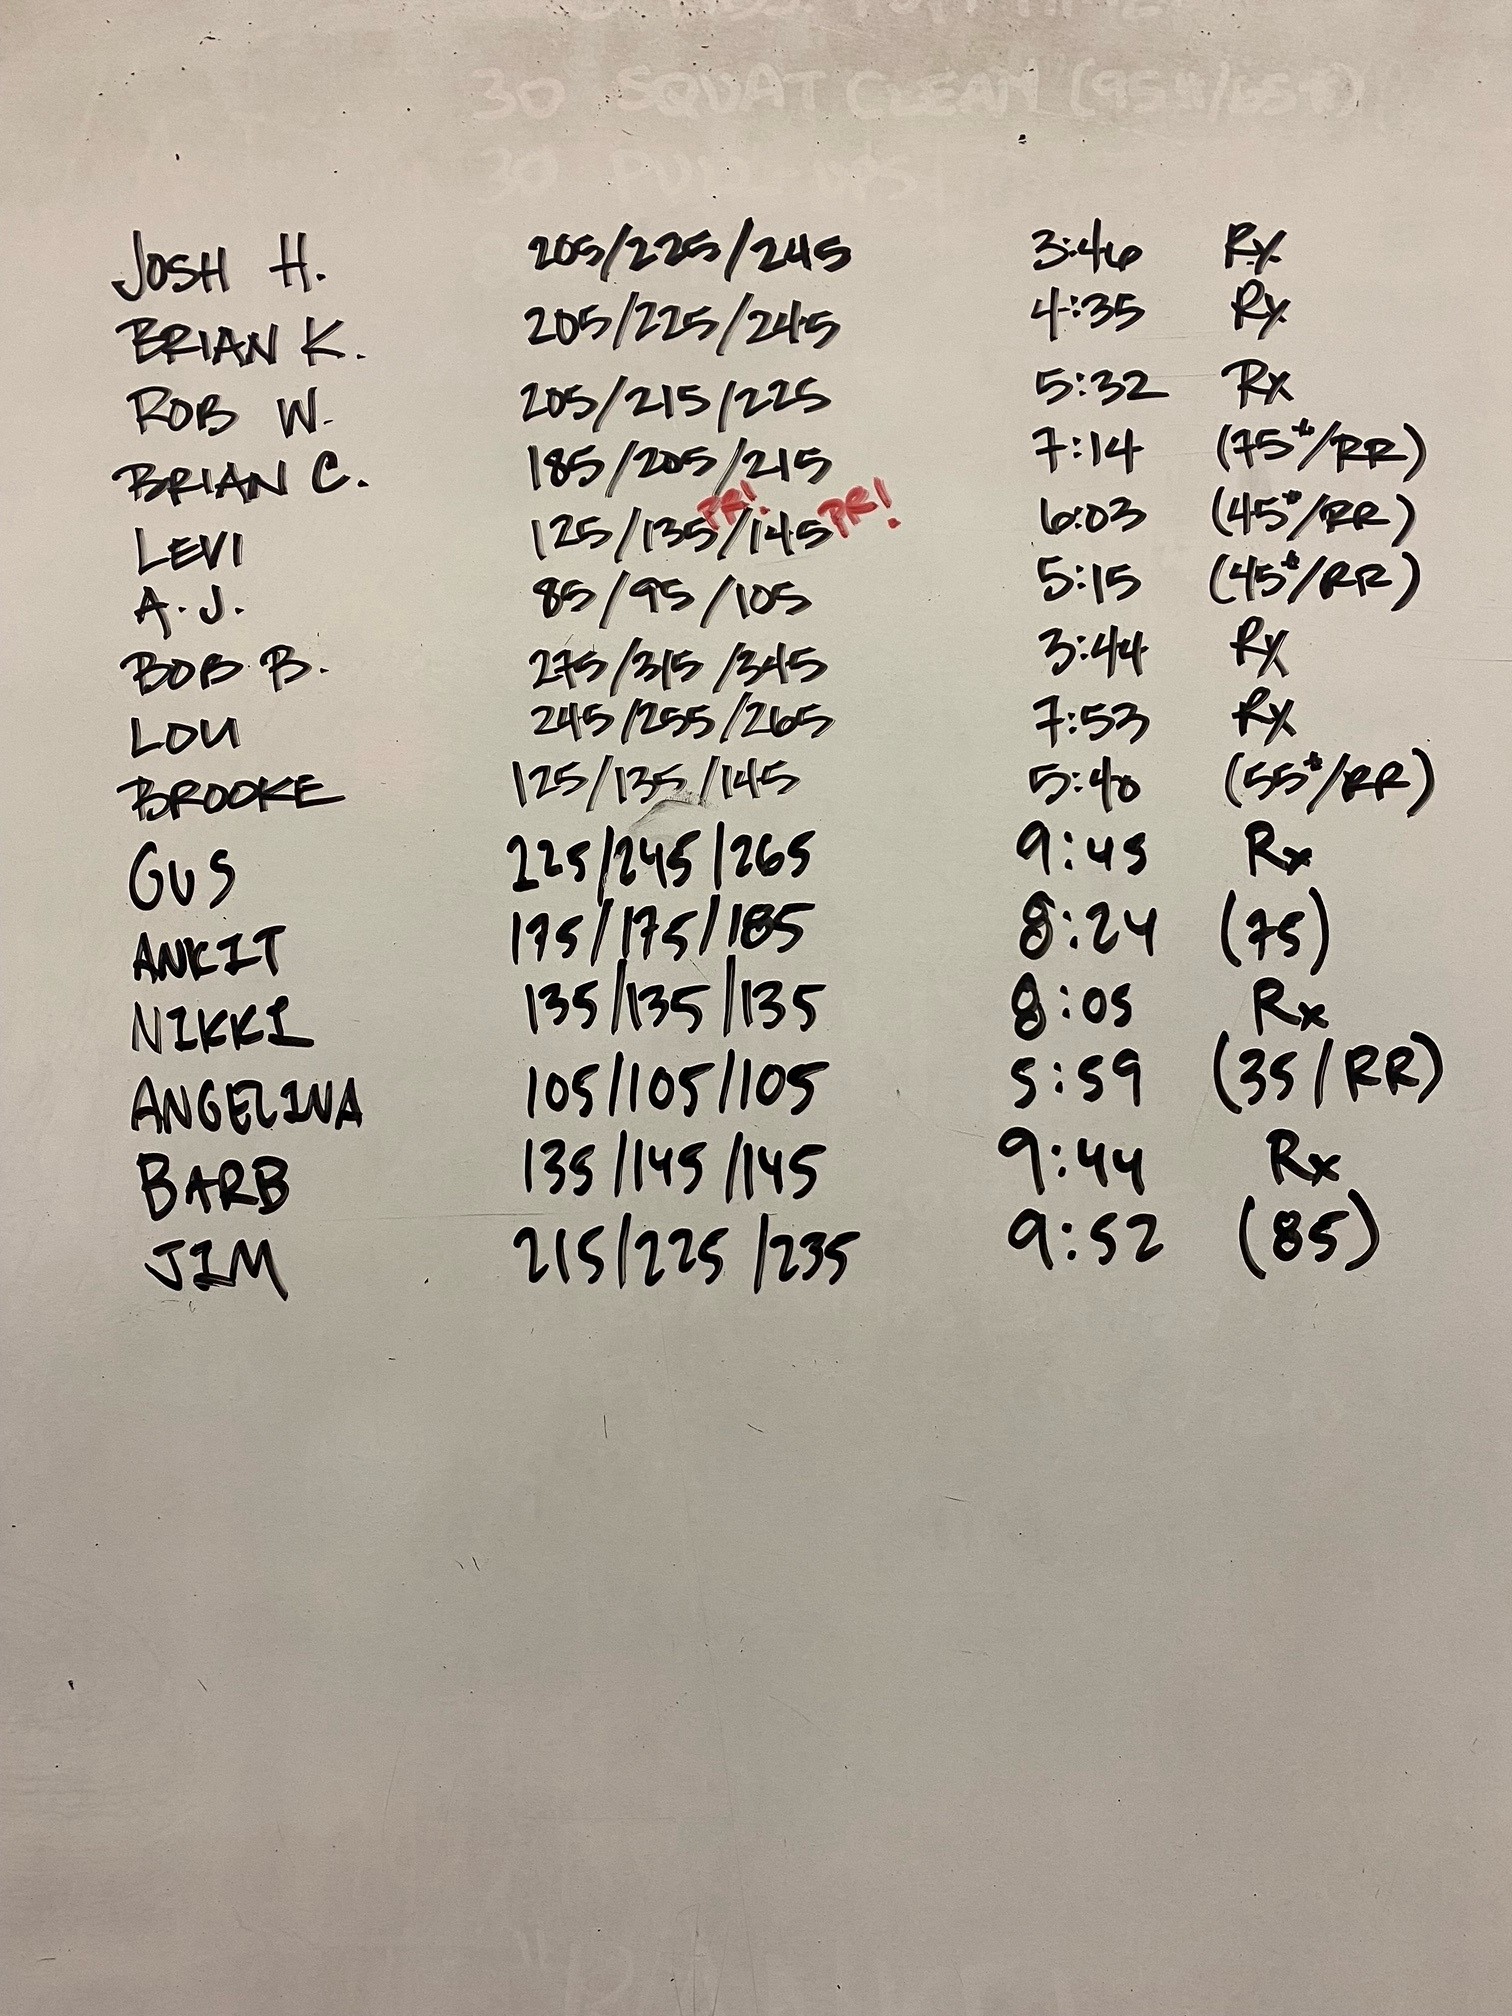 30 SQUAT CLEAN (95#/65#)
30 PULL-UPS
JOSH H. 205/225/245 3:46 Rx
BRIAN K. 205/225/245 4:35 Rx
ROB W. 205/215/225 5:32 Rx
BRIAN C. 185/205/215 7:14 (75#/RR)
LEVI 125/135 PR!/145 PR! 6:03 (45#/RR)
A.J. 85/95/105 5:15 (45#/RR)
BOB B. 275/315/345 3:44 Rx
LOU 245/255/265 7:53 Rx
BROOKE 125/135/145 5:40 (55#/RR)
GUS 225/245/265 9:45 Rx
ANKIT 175/175/185 8:24 (75)
NIKKI 135/135/135 8:05 Rx
ANGELINA 105/105/105 5:59 (35/RR)
BARB 135/145/145 9:44 Rx
JIM 215/225/235 9:52 (85)